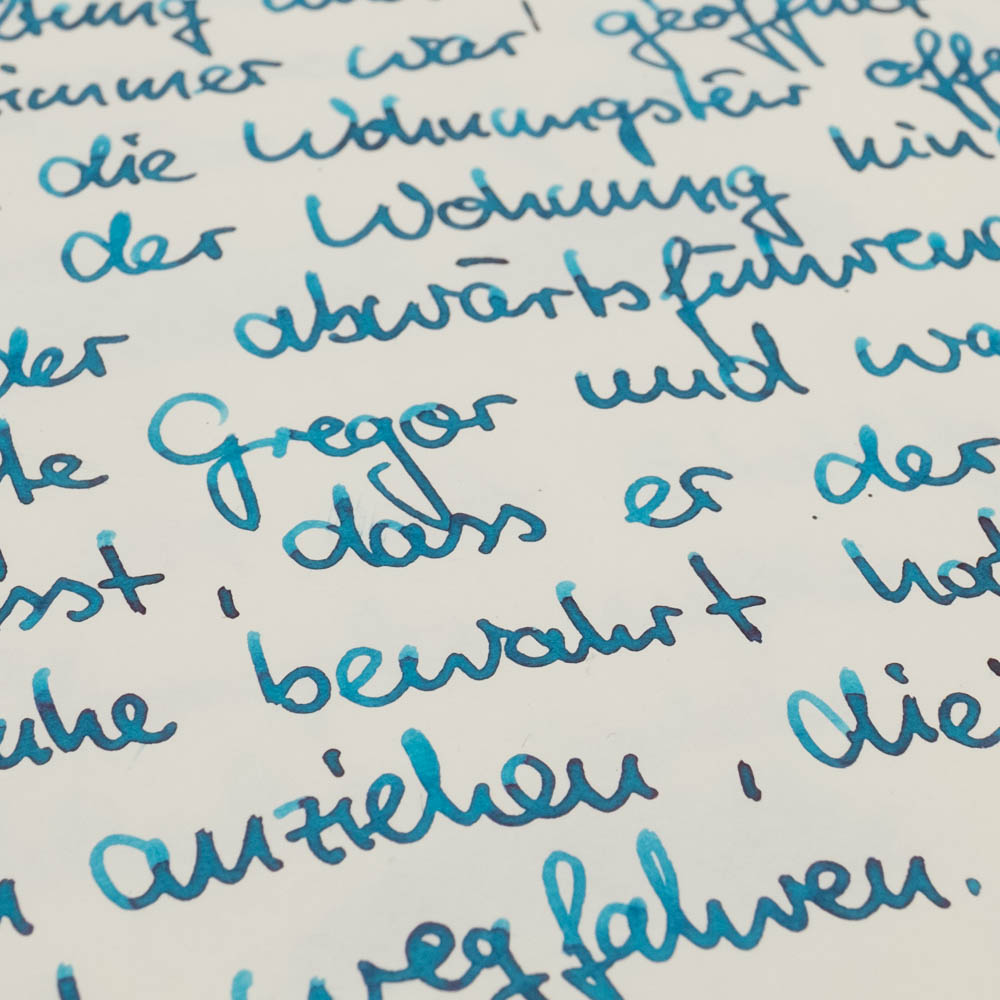 war geöffnet
die Wohnungstür offe
der Wohnung hin
der abwärtsführen
Gregor und wa
sst, dass er der
uhe bewahrt hat
anziehen, die
wegfahren.